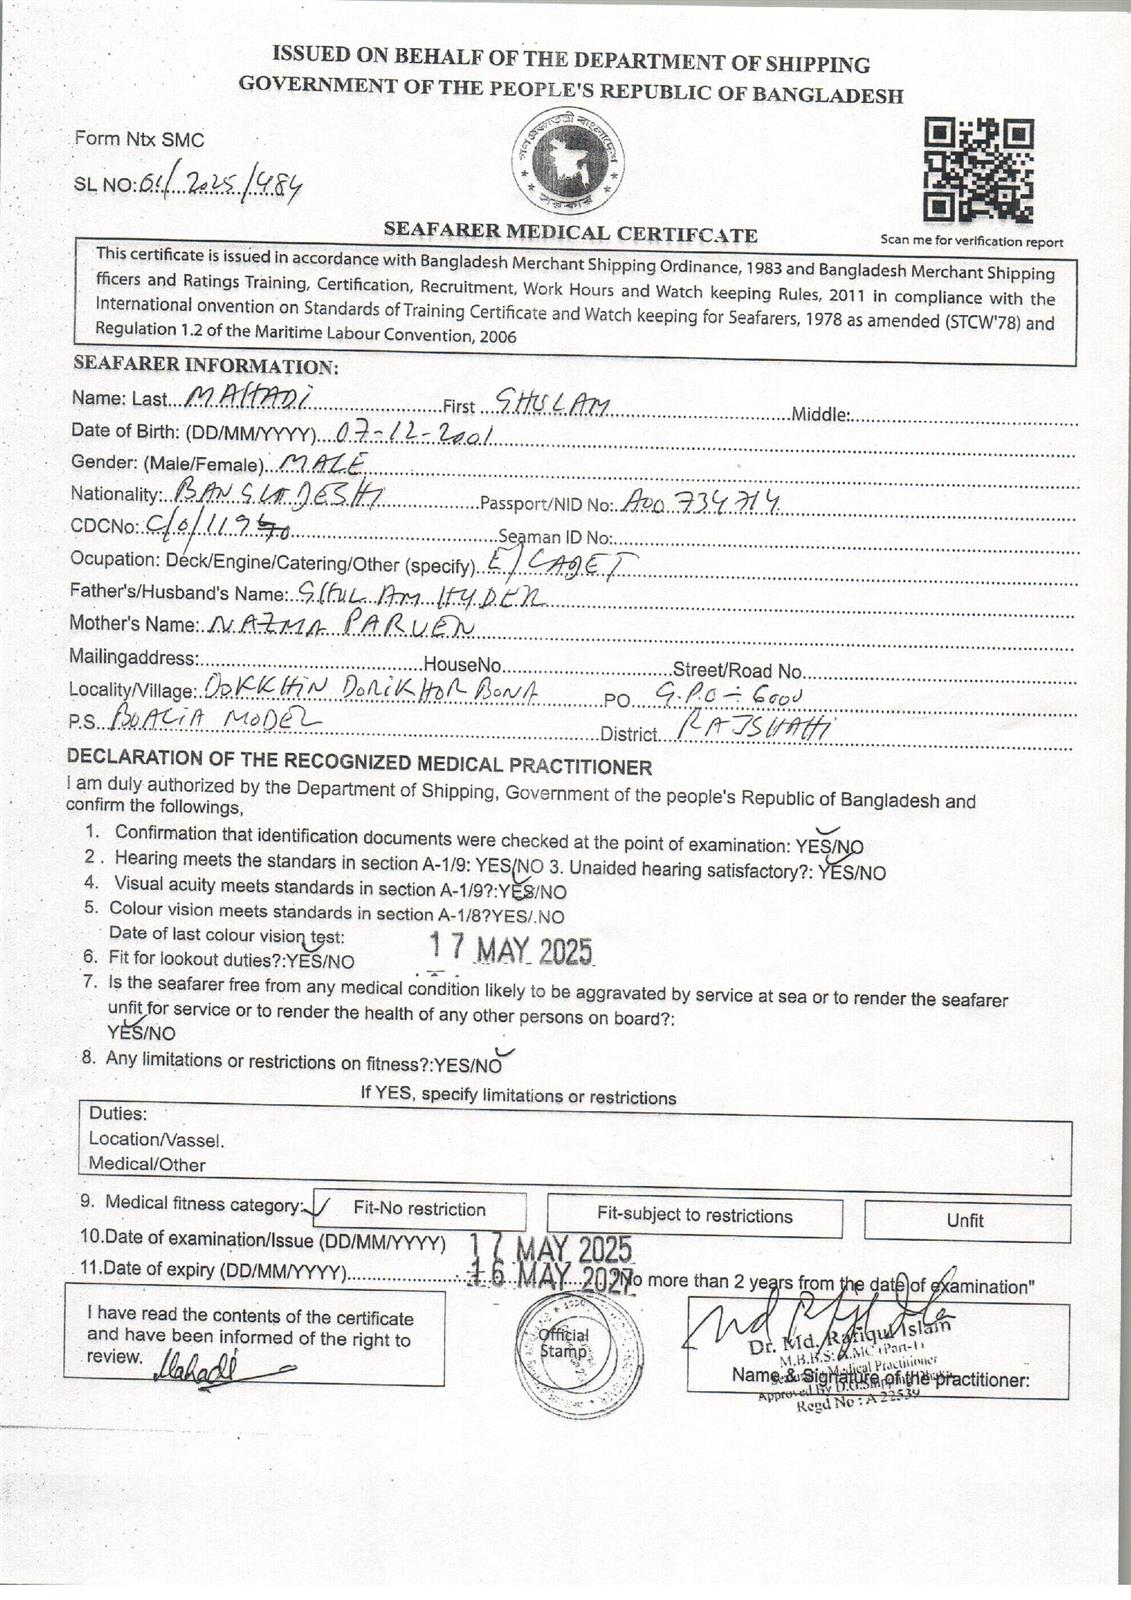 ISSUED ON BEHALF OF THE DEPARTMENT OF SHIPPING
GOVERNMENT OF THE PEOPLE'S REPUBLIC OF BANGLADESH
Form Ntx SMC
SL NO: 61/2025/484
SEAFARER MEDICAL CERTIFCATE
Scan me for verification report
This certificate is issued in accordance with Bangladesh Merchant Shipping Ordinance, 1983 and Bangladesh Merchant Shipping
fficers and Ratings Training, Certification, Recruitment, Work Hours and Watch keeping Rules, 2011 in compliance with the
International onvention on Standards of Training Certificate and Watch keeping for Seafarers, 1978 as amended (STCW'78) and
Regulation 1.2 of the Maritime Labour Convention, 2006
SEAFARER INFORMATION:
Name: Last MAHADI First GHULAM Middle:
Date of Birth: (DD/MM/YYYY) 07-12-2001
Gender: (Male/Female) MALE
Nationality: BANGLADESHI Passport/NID No: A00734714
CDCNo: C/O/119 Seaman ID No:
Ocupation: Deck/Engine/Catering/Other (specify) E/CADET
Father's/Husband's Name: GHULAM HYDER
Mother's Name: NAZMA PARVEN
Mailingaddress: HouseNo Street/Road No
Locality/Village: DOKKHIN DORIKHORBONA PO G.P.O ÷ 6000
P.S. BOALIA MODEL District RAJSHAHI
DECLARATION OF THE RECOGNIZED MEDICAL PRACTITIONER
I am duly authorized by the Department of Shipping, Government of the people's Republic of Bangladesh and
confirm the followings,
1. Confirmation that identification documents were checked at the point of examination: YES/NO
2 . Hearing meets the standars in section A-1/9: YES/NO 3. Unaided hearing satisfactory?: YES/NO
4. Visual acuity meets standards in section A-1/9?:YES/NO
5. Colour vision meets standards in section A-1/8?YES/.NO
Date of last colour vision test: 17 MAY 2025
6. Fit for lookout duties?:YES/NO
7. Is the seafarer free from any medical condition likely to be aggravated by service at sea or to render the seafarer
unfit for service or to render the health of any other persons on board?:
YES/NO
8. Any limitations or restrictions on fitness?:YES/NO
If YES, specify limitations or restrictions
Duties:
Location/Vassel.
Medical/Other
9. Medical fitness category: Fit-No restriction Fit-subject to restrictions Unfit
10.Date of examination/Issue (DD/MM/YYYY) 17 MAY 2025
11.Date of expiry (DD/MM/YYYY) 16 MAY 2027 "No more than 2 years from the date of examination"
I have read the contents of the certificate
and have been informed of the right to
review. Mahadi
Official
Stamp
Dr. Md. Rafiqul Islam
M.B.B.S: A.MC (Part-1)
Medical Practitioner
Name & Signature of the practitioner:
Approved By D.G.Shipping Dhaka
Regd No : A 22539